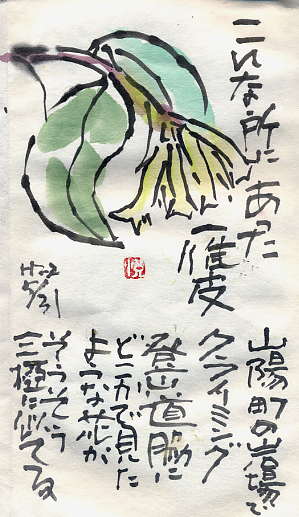 こんな所にあった
雁皮
H22
5/31
山陽町の岩場で
クライミング
登山道脇に
どこかで見た
ような花が
そうそう
三椏に似てる
悦